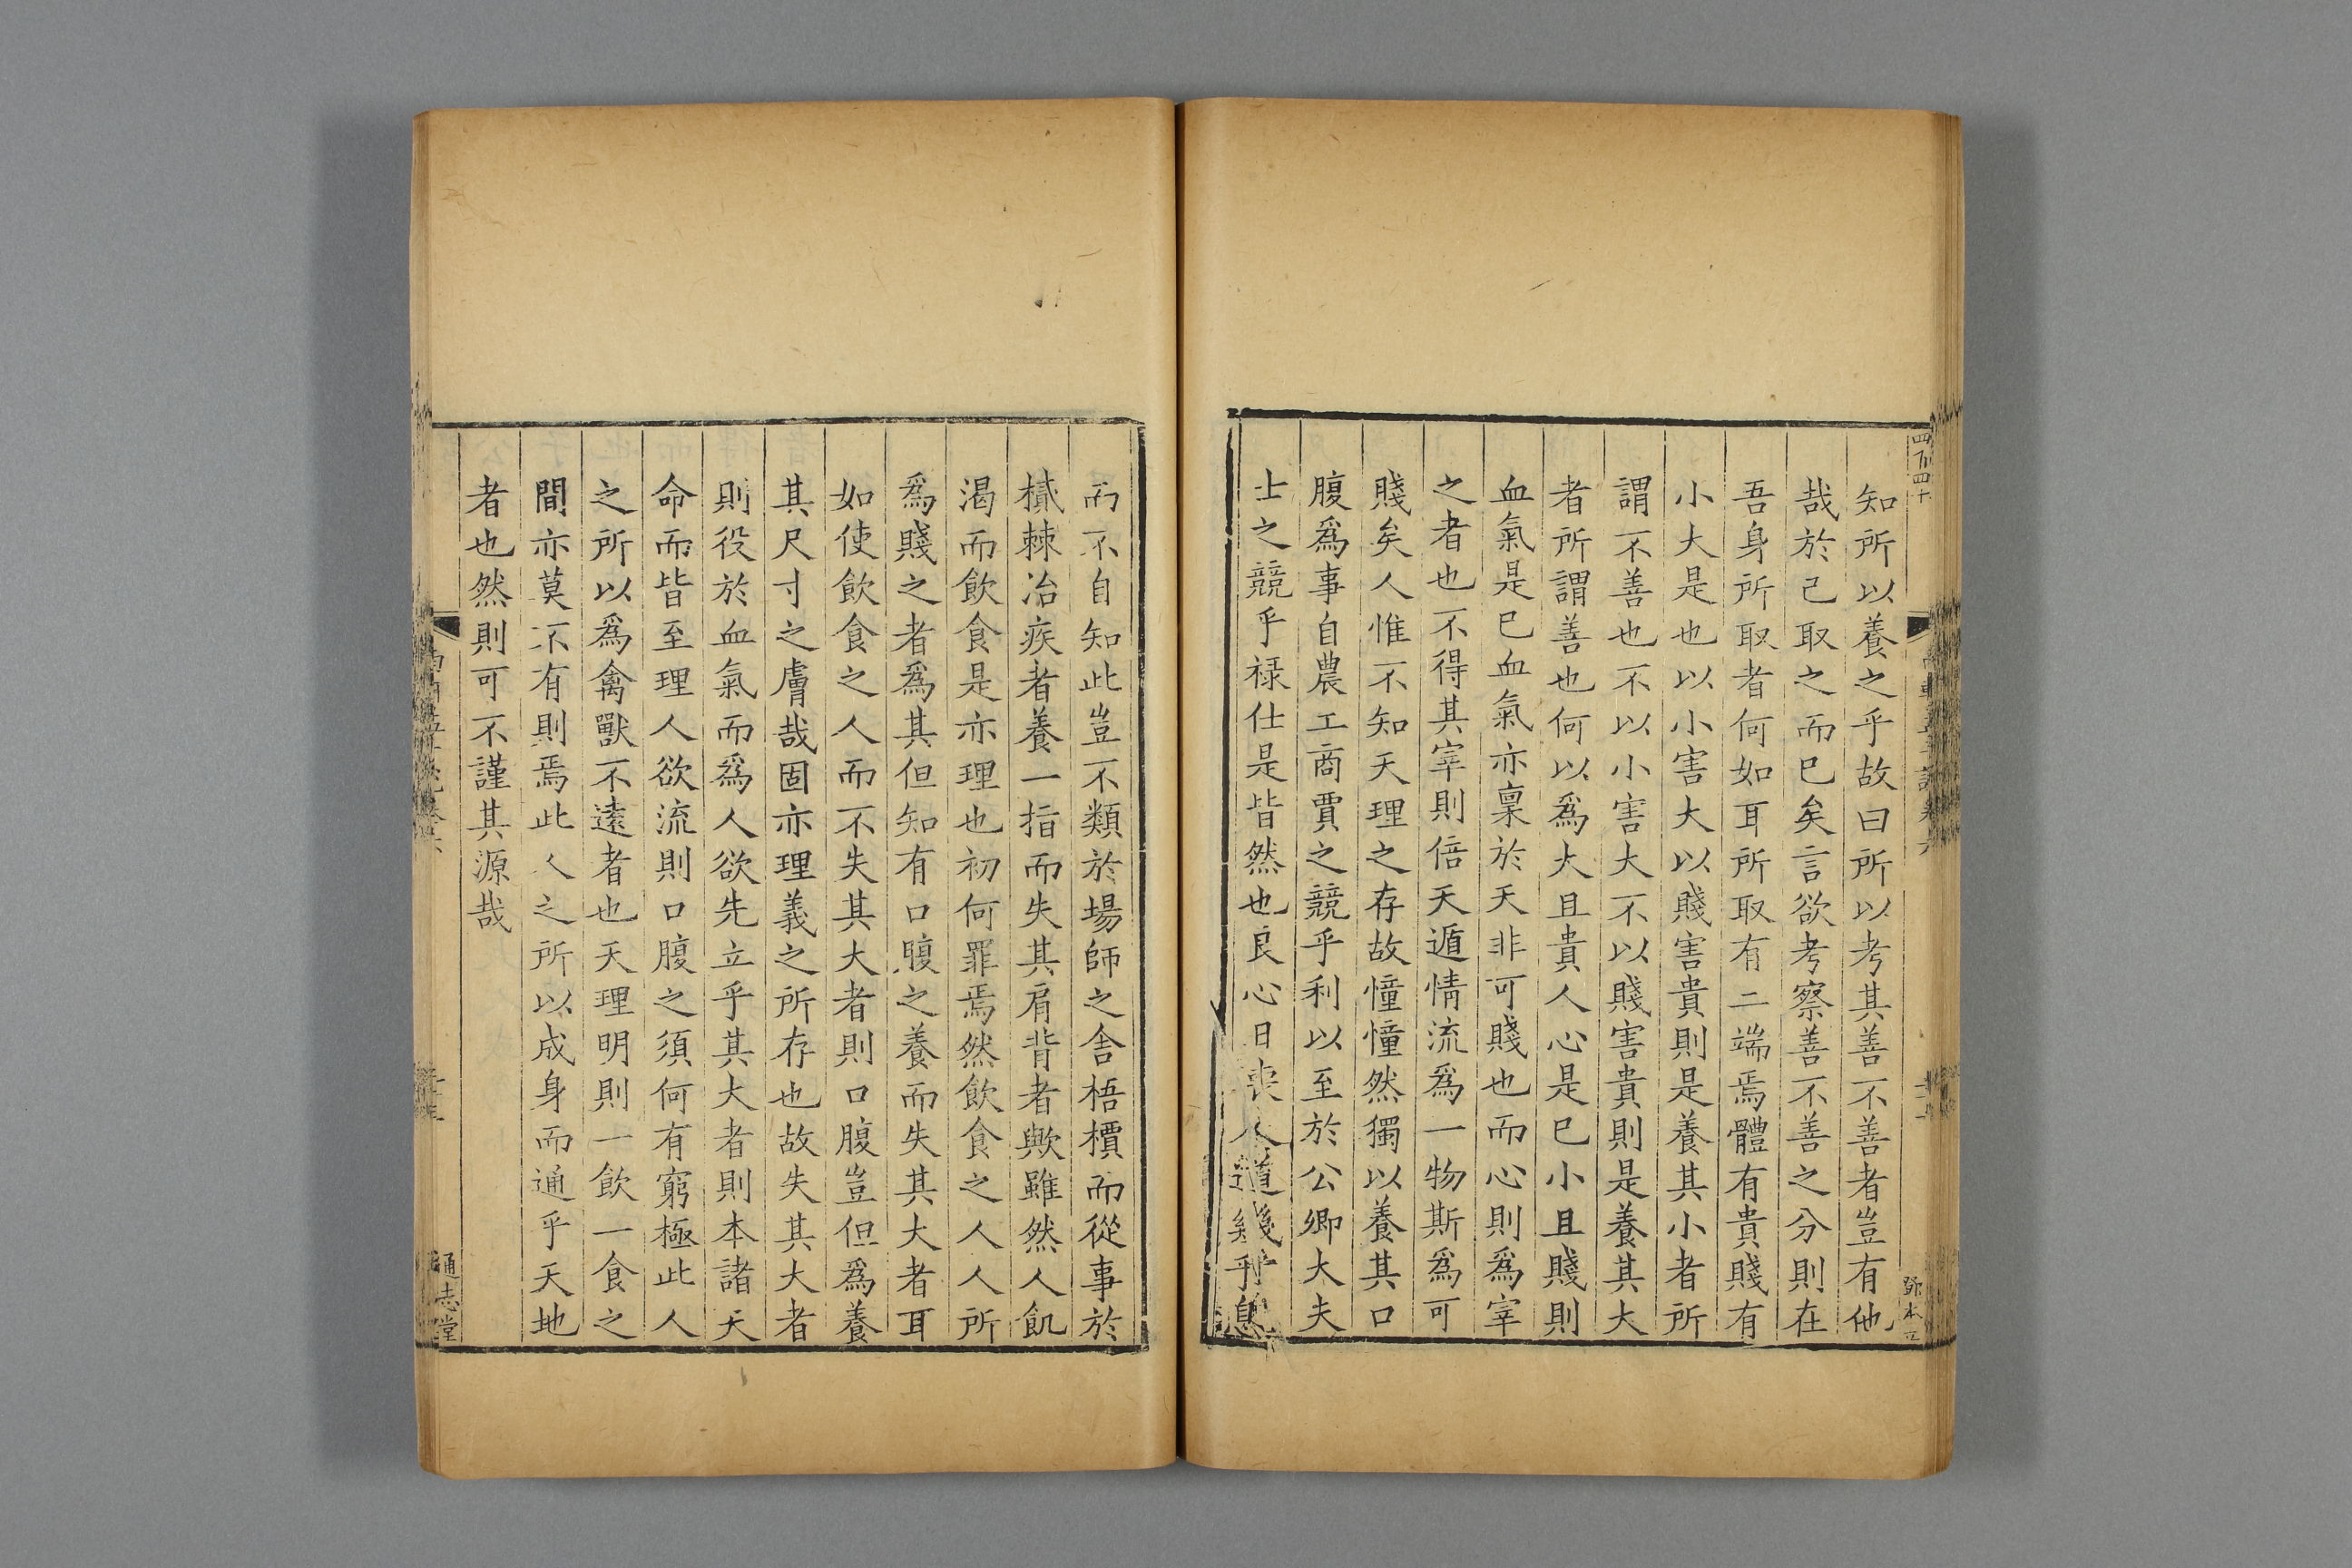 四百四十
知所以養之乎故曰所以考其善不善者豈有他
哉於己取之而已矣言欲考察善不善之分則在
吾身所取者何如耳所取有二端焉體有貴賤有
小大是也以小害大以賤害貴則是養其小者所
謂不善也不以小害大不以賤害貴則是養其大
者所謂善也何以爲大且貴人心是已小且賤則
血氣是已血氣亦稟於天非可賤也而心則爲宰
之者也不得其宰則倍天遁情流爲一物斯爲可
賤矣人惟不知天理之存故憧憧然獨以養其口
腹爲事自農工商賈之競乎利以至於公卿大夫
士之競乎祿仕是皆然也良心日喪人道幾乎息
而不自知此豈不類於場師之舍梧檟而從事於
樲棘治疾者養一指而失其肩背者歟雖然人飢
渴而飲食是亦理也初何罪焉然飲食之人人所
爲賤之者爲其但知有口腹之養而失其大者耳
如使飲食之人而不失其大者則口腹豈但爲養
其尺寸之膚哉固亦理義之所存也故失其大者
則役於血氣而爲人欲先立乎其大者則本諸天
命而皆至理人欲流則口腹之須何有窮極此人
之所以爲禽獸不遠者也天理明則一飲一食之
間亦莫不有則焉此人之所以成身而通乎天地
者也然則可不謹其源哉
通志堂